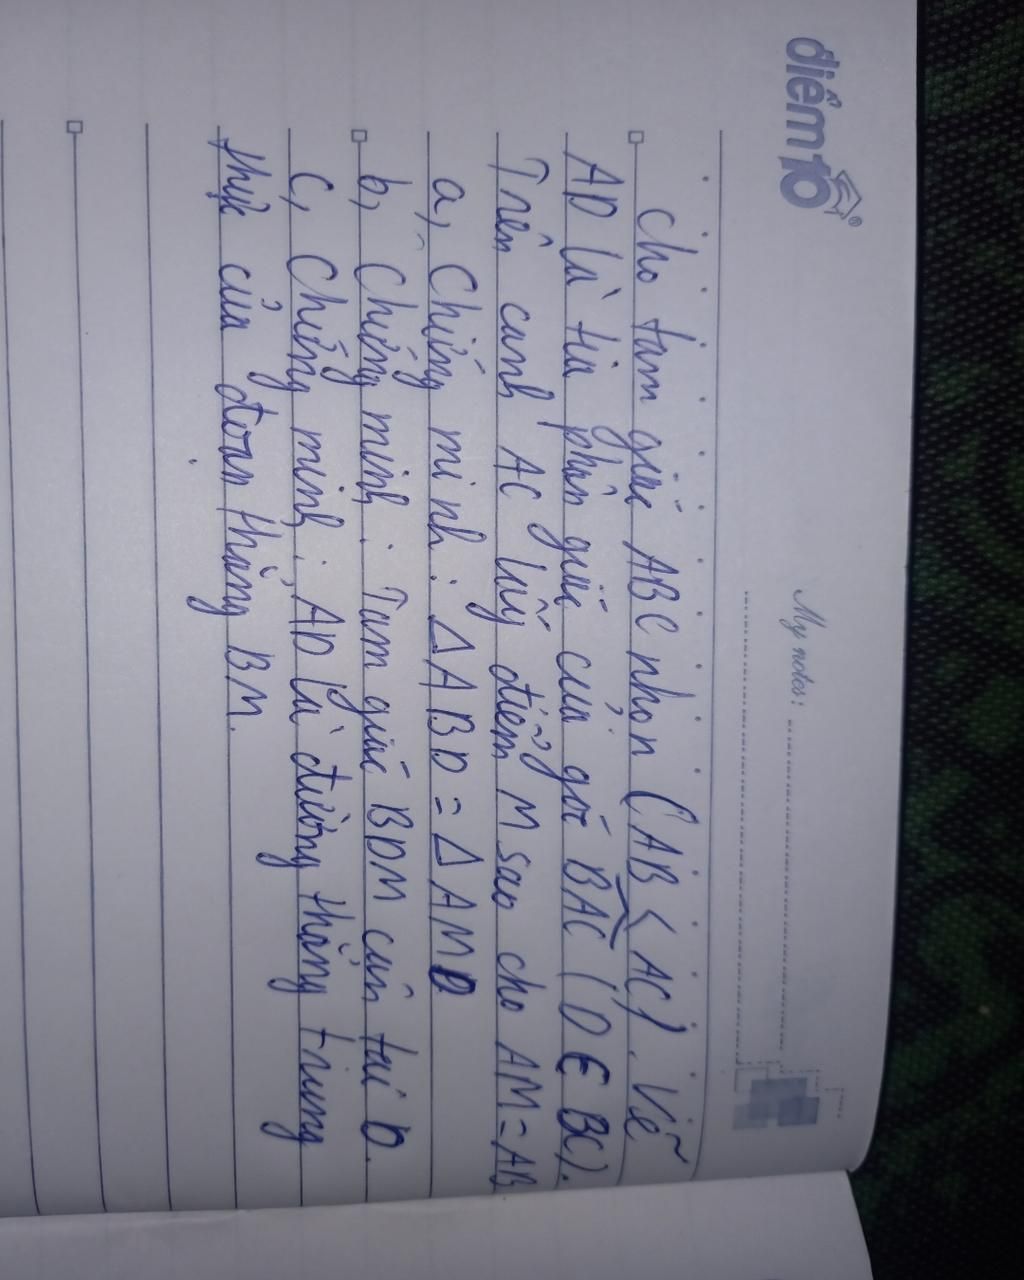 điểm10
My notes:
Cho tam giác ABC nhọn (AB < AC). Vẽ
AD là tia phân giác của góc BAC (D ∈ BC).
Trên cạnh AC lấy điểm M sao cho AM = AB
a, Chứng minh: ΔABD = ΔAMD
b, Chứng minh: Tam giác BDM cân tại D.
c, Chứng minh: AD là đường thẳng trung
trực của đoạn thẳng BM.